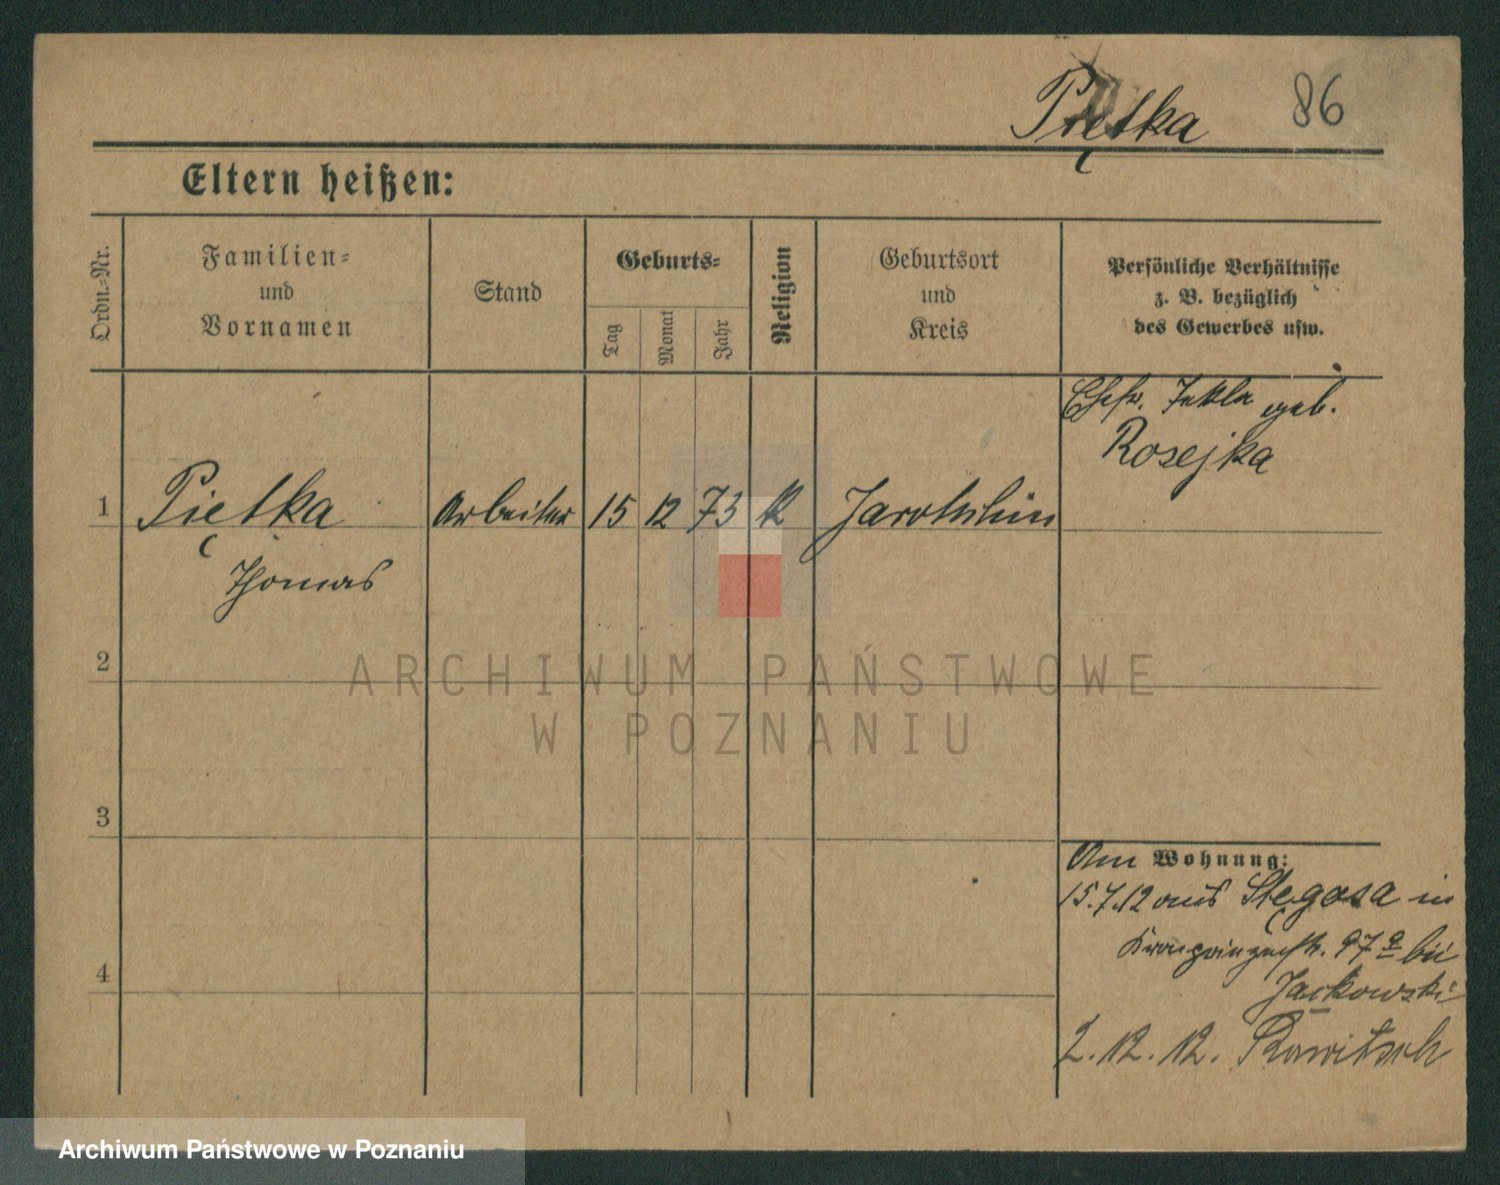 Piętka 86
Eltern heißen:
Ordn.-Nr.
Familien-
und
Vornamen
Stand
Geburts-
Tag
Monat
Jahr
Religion
Geburtsort
und
Kreis
Persönliche Verhältnisse
z. B. bezüglich
des Gewerbes usw.
Ehefr. Tekla geb.
Rosejka
1 Piętka Arbeiter 15 12 73 K Jarotschin
Thomas
2
3
4
Am Wohnung:
15.7.12 aus Stęgosa in
Kronprinzenstr. 97a bei
Jackowski
2.12.12. Rawitsch
ARCHIWUM PAŃSTWOWE
W POZNANIU
Archiwum Państwowe w Poznaniu